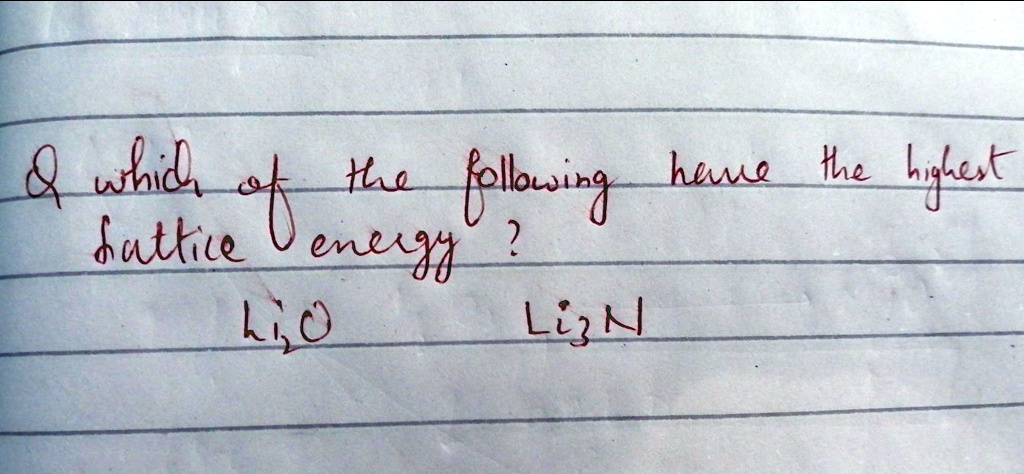 Q which of the following have the highest
Lattice energy ?
Li₂O Li₃N